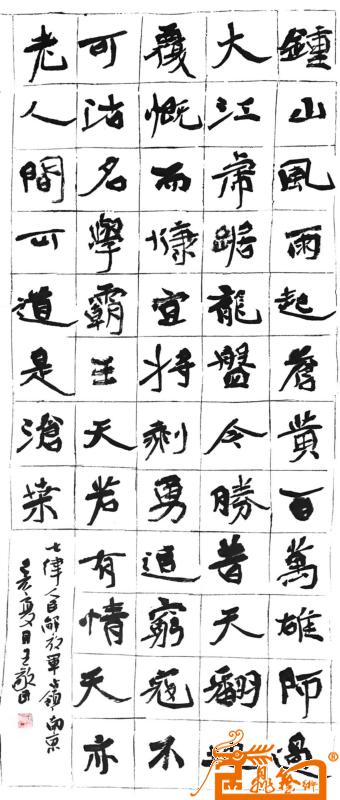 鍾山風雨起蒼黃百萬雄師過
大江虎踞龍盤今勝昔天翻地
覆慨而慷宜將剩勇追窮寇不
可沽名學霸王天若有情天亦
老人間正道是滄桑
七律人民解放軍占領南京
夏日王敬